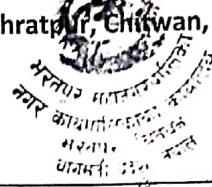 hratpur, Chitwan,
भरतपुर महानगरपालिका
नगर कार्यपालिकाको कार्यालय
भरतपुर, चितवन
बागमती प्रदेश नेपाल